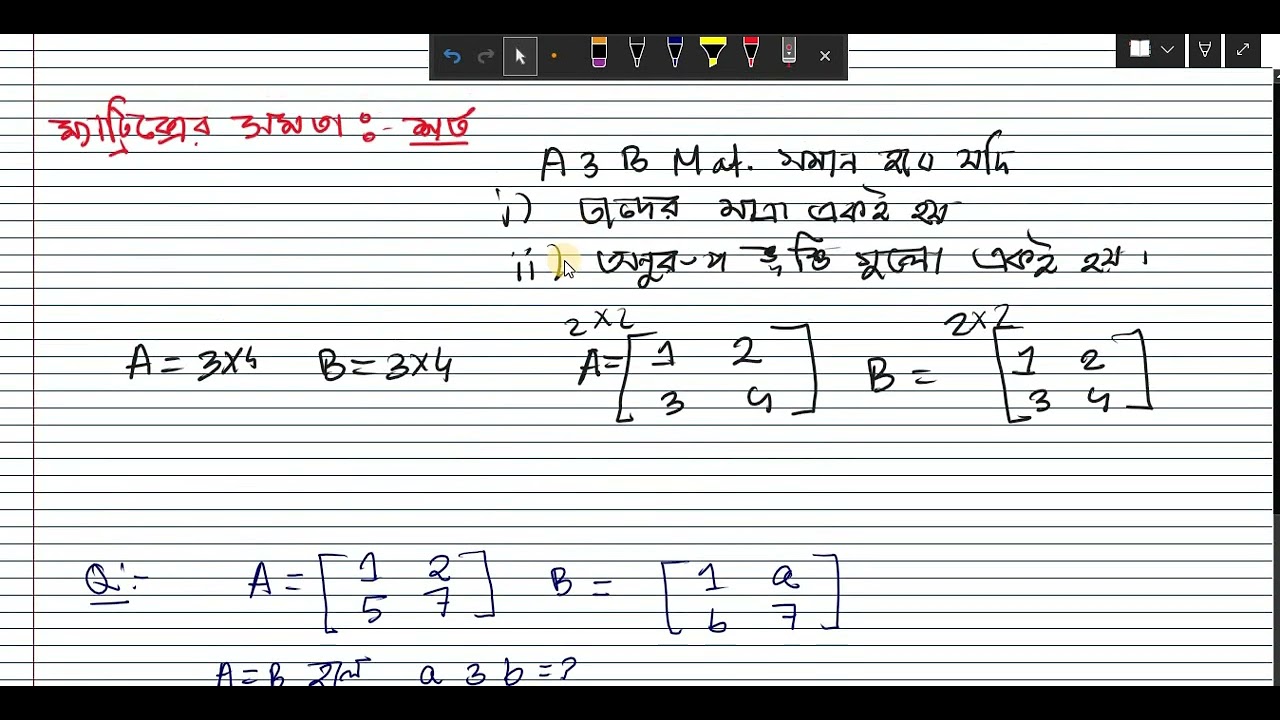 ম্যাট্রিক্সের সমতা :- শর্ত
A ও B Mat. সমান হবে যদি
i) তাদের মাত্রা একই হয়
ii) অনুরূপ ভুক্তি গুলো একই হয়।
A = 3×4 B = 3×4
2×2 2×2
A= [ 1 2 B = [ 1 2
3 4 ] 3 4 ]
Q:- A = [ 1 2 B = [ 1 a
5 7 ] b 7 ]
A = B হলে a ও b = ?